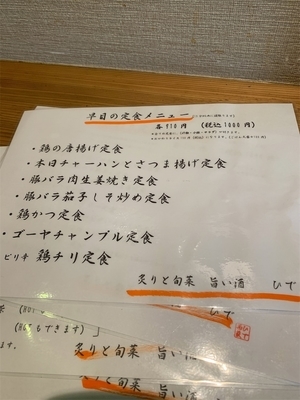 早目の定食メニュー
各910円 (税込1000円)
・鶏の唐揚げ定食
・本日チャーハンとさつま揚げ定食
・豚バラ肉生姜焼き定食
・豚バラ茄子しそ炒め定食
・鶏かつ定食
・ゴーヤチャンプル定食
ピリ辛 鶏チリ定食
炙りと旬菜 旨い酒 ひで
ひで
もできます)」
ます。
炙りと旬菜 旨い酒
炙りと旬菜 旨い酒